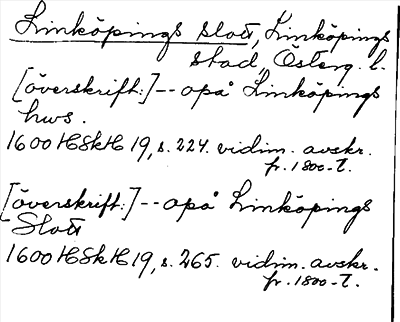 Linköpings slott, Linköpings
stad, Österg. l.
[överskrift:] -- opå Linköpings
hws.
1600 HSkH 19, s. 224. vidim. avskr.
fr. 1800-t.
[överskrift:] -- opå Linköpings
Slott
1600 HSkH 19, s. 265. vidim. avskr.
fr. 1800-t.